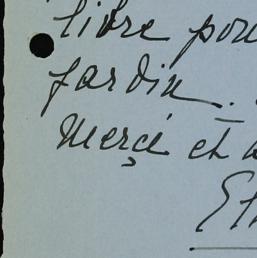 libre pou
Jardin.
Merci et a